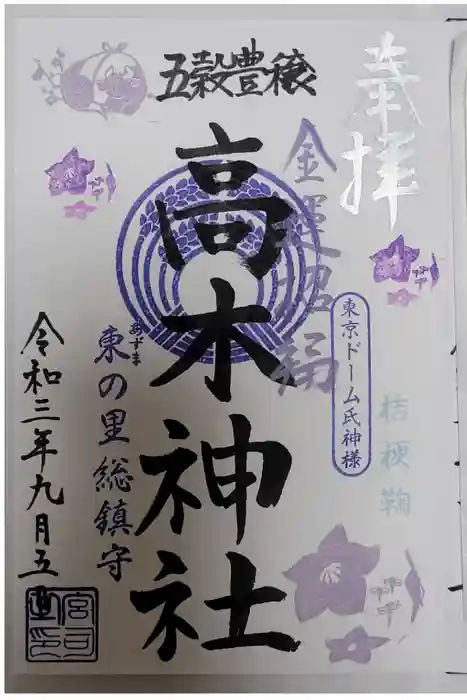 奉拝
五穀豊穣
金運招福
東京ドーム氏神様
桔梗鞠
高木神社
あずま
東の里総鎮守
令和三年九月五
宮司
之印